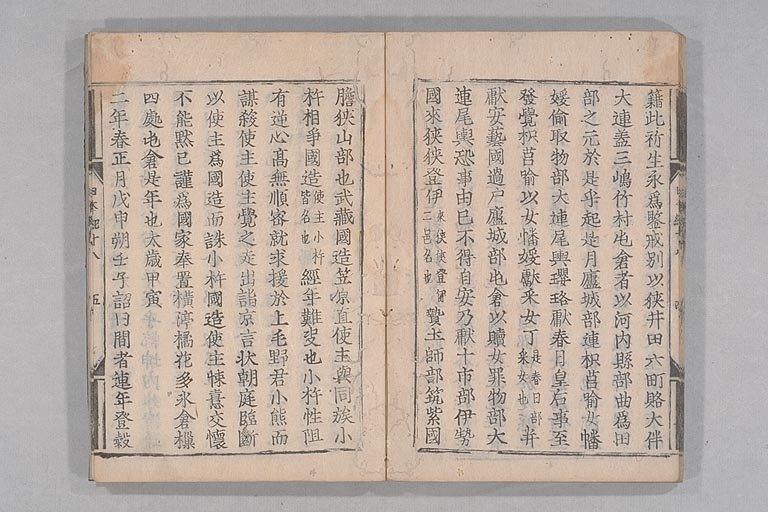 籍此祈生永爲鑒戒別以狹井田六町賂大伴
大連蓋三嶋竹村屯倉者以河内縣部曲爲田
部之元於是乎起是月廬城部連枳莒喻女幡
媛偷取物部大連尾輿瓔珞獻春日皇后事至
發覺枳莒喻以女幡媛獻采女丁是春日部采女也并
獻安藝國過戸廬城部屯倉以贖女罪物部大
連尾輿恐事由已不得自安乃獻十市部伊勢
國來狹狹登伊來狹狹登伊二邑名也贄土師部筑紫國
膽狹山部也武藏國造笠原直使主與同族小
杵相爭國造使主小杵皆名也經年難决也小杵性阻
有逆心髙無順密就求援於上毛野君小熊而
謀殺使主使主覺之走出詣京言状朝庭臨斷
以使主爲國造而誅小杵國造使主悚憙交懷
不能黙已謹爲國家奉置横渟橘花多氷倉樔
四處屯倉是年也太歳甲寅
二年春正月戊申朔壬子詔曰間者連年登穀
五